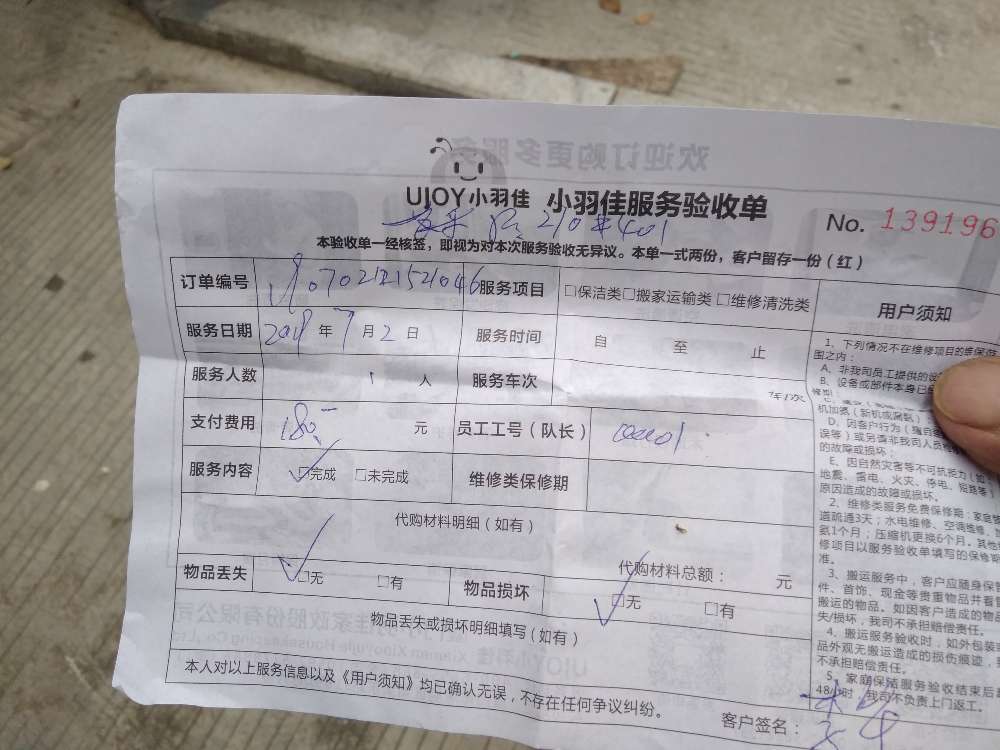 UJOY小羽佳 小羽佳服务验收单
No. 139196
210 401
本验收单一经核签，即视为对本次服务验收无异议。本单一式两份，客户留存一份（红）
订单编号 0702121521046 服务项目 □保洁类□搬家运输类 □维修清洗类
服务日期 2018 年 7 月 2 日 服务时间 自 至 止
服务人数 1 人 服务车次
支付费用 180 元 员工工号（队长）
服务内容 □完成 □未完成 维修类保修期
代购材料明细（如有）
代购材料总额： 元
物品丢失 □无 □有 物品损坏 □无 □有
物品丢失或损坏明细填写（如有）
本人对以上服务信息以及《用户须知》均已确认无误，不存在任何争议纠纷。
客户签名：
用户须知
1、下列情况不在维修项目的维保范
围之内：
A、非我司员工提供的
B、设备或部件本身已
机加氨（新机或漏氨）
D、因客户行为
误等）或另请非我司人员
的故障或损坏；
E、因自然灾害等不可抗拒力（如
地震、雷电、火灾、停电、短路等）
原因造成的故障或损坏。
2、维修类服务免费保修期：家庭
道疏通3天；水电维修、空调维修、
氨1个月；压缩机更换6个月。其他
修项目以服务验收单填写的保修期
准。
3、搬运服务中，客户应随身保管
件、首饰、现金等贵重物品并看
搬运的物品。如因客户造成的物品
失/损坏，我司不承担赔偿责任。
4、搬运服务验收时，如外包装
品外观无搬运造成的损伤痕迹，
不承担赔偿责任。
5、家庭保洁服务验收结束后
48小时，我司不负责上门返工。